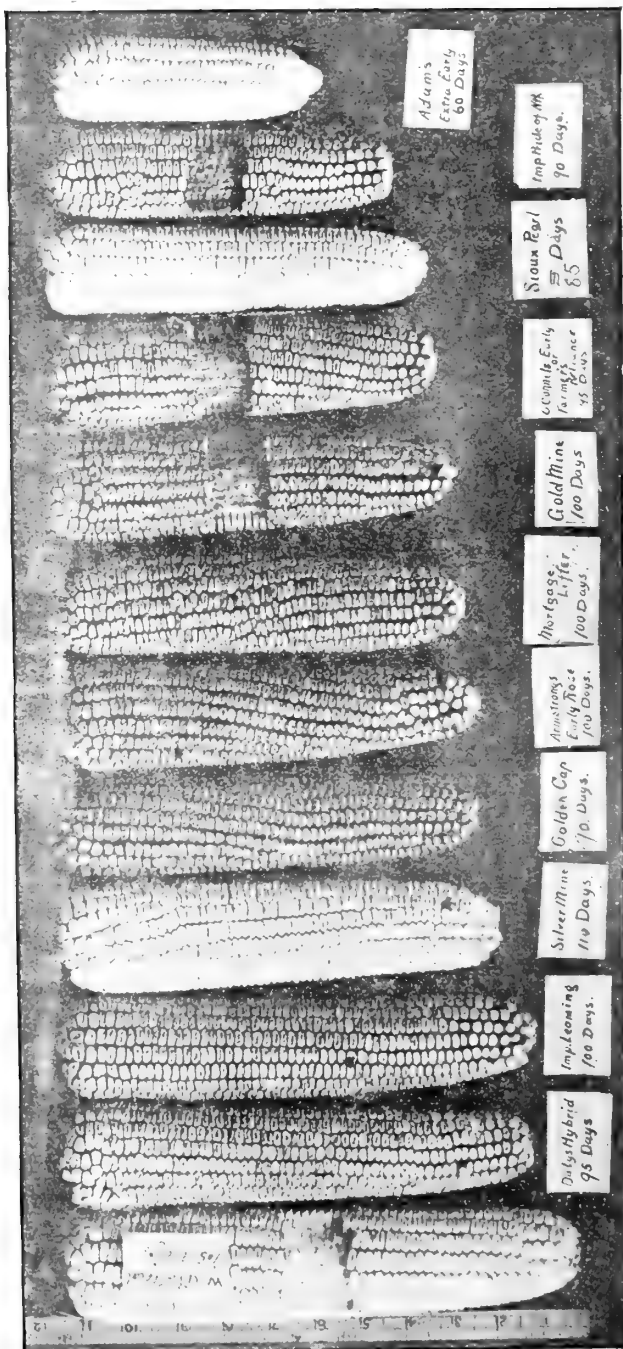 Adam's
Extra Early
60 Days
90 Days.
Sioux Pearl
Days
85
Early
or
Farmers Reliance
95 Days
Gold Mine
100 Days
Mortgage
Lifter
100 Days
Armstrongs
Early Rose
100 Days.
Golden Cap
90 Days.
Silver Mine
110 Days.
Imp. Leaming
100 Days.
Dalys Hybrid
95 Days